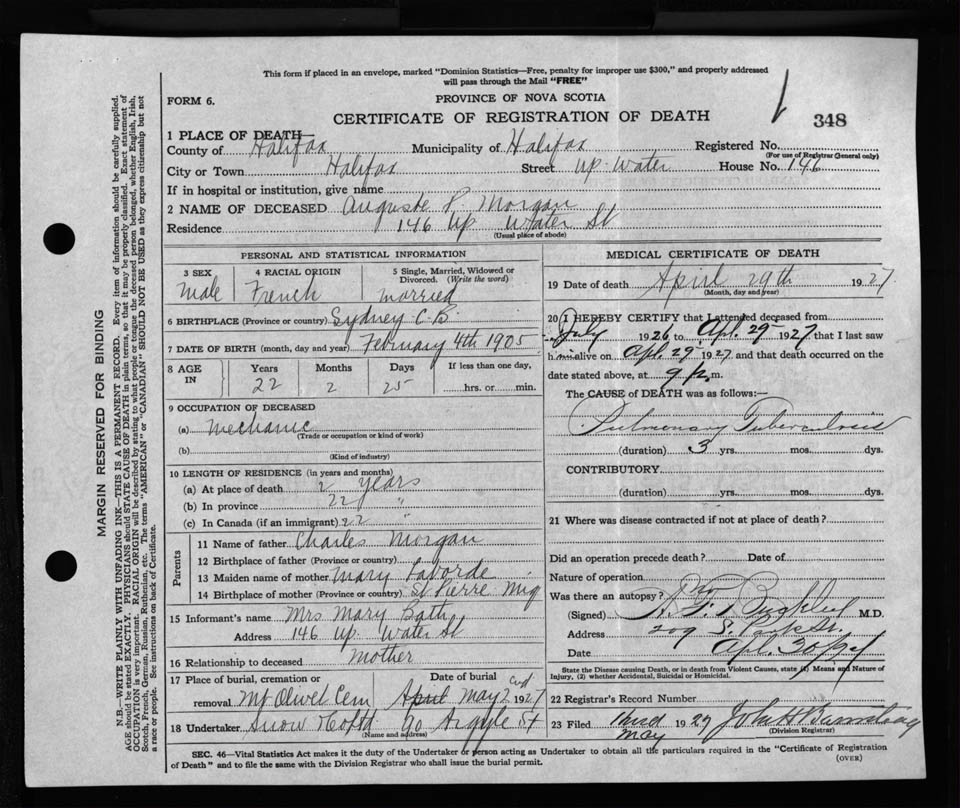 This form if placed in an envelope, marked "Dominion Statistics—Free, penalty for improper use $300," and properly addressed
will pass through the Mail "FREE"
FORM 6.
PROVINCE OF NOVA SCOTIA
CERTIFICATE OF REGISTRATION OF DEATH
348
1 PLACE OF DEATH—
County of Halifax Municipality of Halifax Registered No.
(For use of Registrar General only)
City or Town Halifax Street Up. Water House No. 146
If in hospital or institution, give name
2 NAME OF DECEASED Auguste P. Morgan
Residence 146 Up Water St
(Usual place of abode)
PERSONAL AND STATISTICAL INFORMATION
3 SEX 4 RACIAL ORIGIN 5 Single, Married, Widowed or Divorced. (Write the word)
Male French married
6 BIRTHPLACE (Province or country) Sydney C.B.
7 DATE OF BIRTH (month, day and year) February 4th 1905
8 AGE IN Years Months Days If less than one day,
22 2 25 hrs. or min.
9 OCCUPATION OF DECEASED
(a) Mechanic
(Trade or occupation or kind of work)
(b)
(Kind of industry)
10 LENGTH OF RESIDENCE (in years and months)
(a) At place of death 2 years
(b) In province 22 "
(c) In Canada (if an immigrant) 22 "
Parents
11 Name of father Charles Morgan
12 Birthplace of father (Province or country)
13 Maiden name of mother Mary Laborde
14 Birthplace of mother (Province or country) St Pierre Miq
15 Informant's name Mrs Mary Bath
Address 146 Up. Water St
16 Relationship to deceased Mother
17 Place of burial, cremation or removal Date of burial
Mt Olivet Cem April May 2nd 1927
18 Undertaker Snow & Co Ltd 90 Argyle St
(Name and address)
MEDICAL CERTIFICATE OF DEATH
19 Date of death April 29th 1927
(Month, day and year)
20 I HEREBY CERTIFY that I attended deceased from
July 1926 to Apl. 29 1927 that I last saw
him alive on Apl. 29 1927 and that death occurred on the
date stated above, at 9 p. m.
The CAUSE of DEATH was as follows:—
Pulmonary Tuberculosis
(duration) 3 yrs. mos. dys.
CONTRIBUTORY
(duration) yrs. mos. dys.
21 Where was disease contracted if not at place of death?
Did an operation precede death? Date of
Nature of operation
Was there an autopsy? No
(Signed) Buckley M.D.
Address 209 S. Park St.
Date Apl. 30/27
State the Disease causing Death, or in death from Violent Causes, state (1) Means and Nature of
Injury, (2) whether Accidental, Suicidal or Homicidal.
22 Registrar's Record Number
23 Filed May 1927 John H Barnstead
(Division Registrar)
SEC. 46—Vital Statistics Act makes it the duty of the Undertaker or person acting as Undertaker to obtain all the particulars required in the "Certificate of Registration
of Death" and to file the same with the Division Registrar who shall issue the burial permit.
(OVER)
MARGIN RESERVED FOR BINDING
N.B.—WRITE PLAINLY WITH UNFADING INK—THIS IS A PERMANENT RECORD. Every item of information should be carefully supplied.
AGE should be stated EXACTLY. PHYSICIANS should STATE CAUSE OF DEATH in plain terms, so that it may be properly classified. Exact statement of
OCCUPATION is very important. RACIAL ORIGIN will be described by stating to what people or tongue the deceased person belonged, whether English, Irish,
Scotch, French, German, Russian, Ruthenian, etc. The terms "AMERICAN" or "CANADIAN" SHOULD NOT BE USED as they express citizenship but not
a race or people. See instructions on back of Certificate.